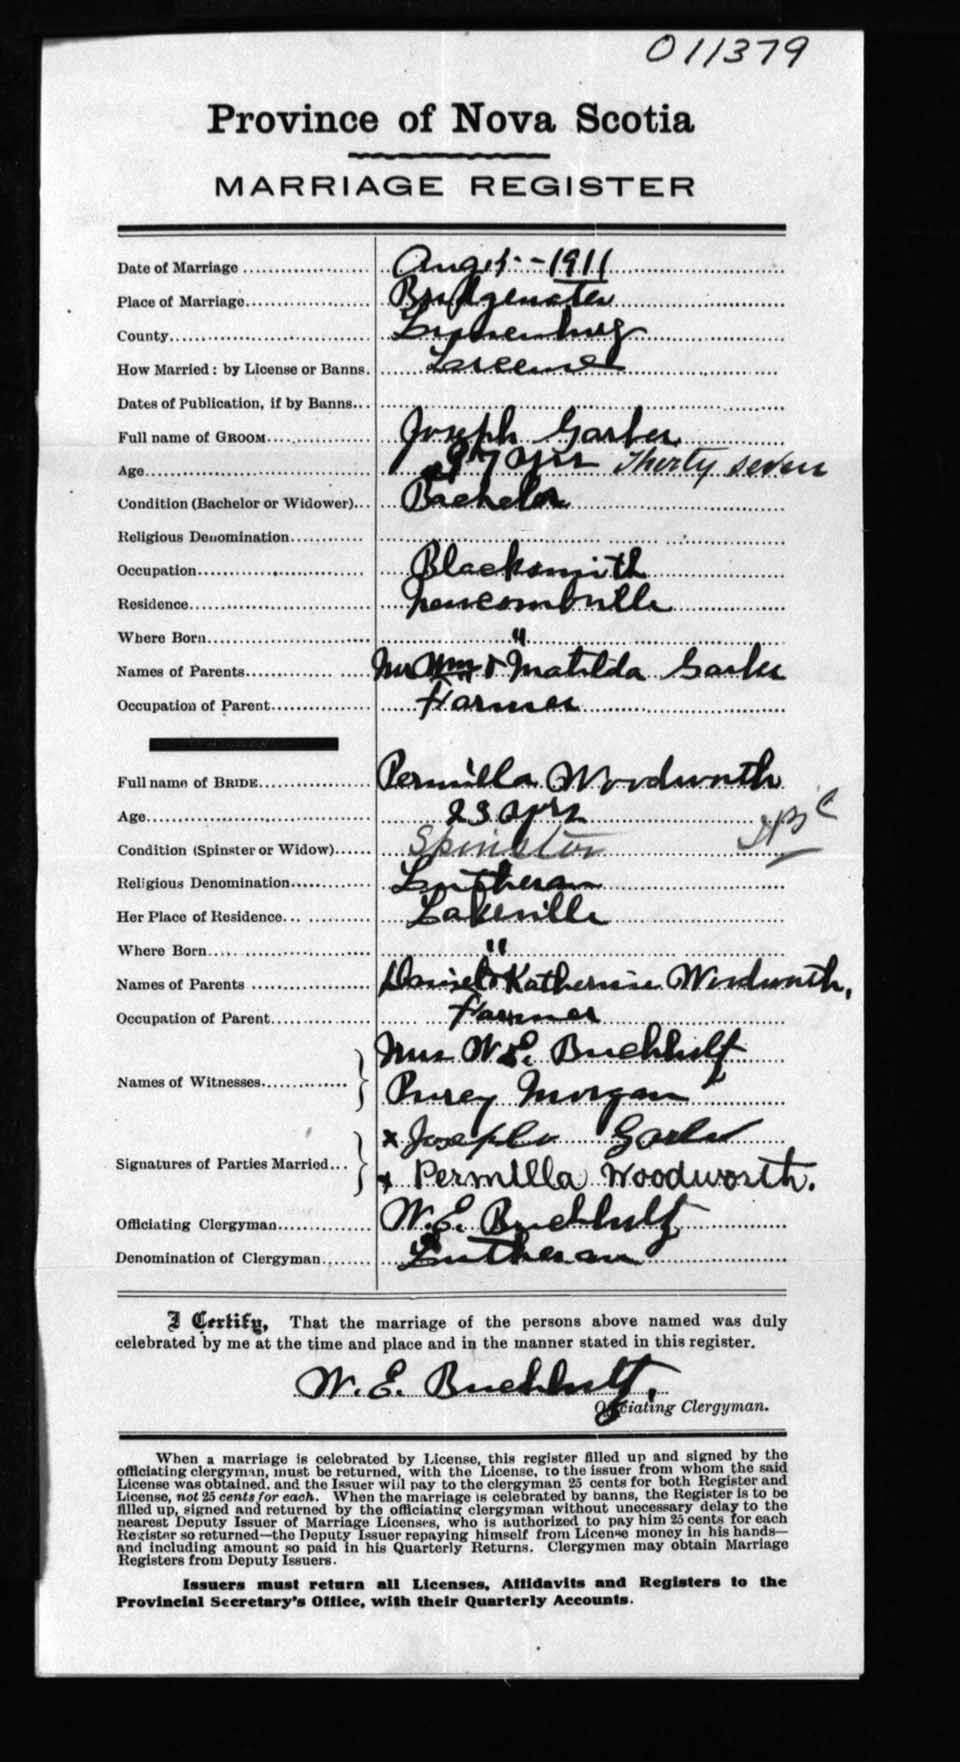 011379
Province of Nova Scotia
MARRIAGE REGISTER
Date of Marriage Aug 1st - 1911
Place of Marriage Bridgewater
County Lunenburg
How Married: by License or Banns. License
Dates of Publication, if by Banns
Full name of GROOM Joseph Garber
Age 37 yrs Thirty seven
Condition (Bachelor or Widower) Bachelor
Religious Denomination
Occupation Blacksmith
Residence Newcombville
Where Born "
Names of Parents Wm & Matilda Garber
Occupation of Parent Farmer
Full name of BRIDE Permilla Woodworth
Age 23 yrs
Condition (Spinster or Widow) Spinster
Religious Denomination Lutheran
Her Place of Residence Lakeville
Where Born "
Names of Parents Daniel & Katherine Woodworth,
Occupation of Parent Farmer
Names of Witnesses Mrs W. E. Buchholtz
Morgan
Signatures of Parties Married x Joseph Garber
x Permilla Woodworth.
Officiating Clergyman W. E. Buchholtz
Denomination of Clergyman Lutheran
I Certify, That the marriage of the persons above named was duly
celebrated by me at the time and place and in the manner stated in this register.
W. E. Buchholtz,
Officiating Clergyman.
When a marriage is celebrated by License, this register filled up and signed by the
officiating clergyman, must be returned, with the License, to the issuer from whom the said
License was obtained, and the Issuer will pay to the clergyman 25 cents for both Register and
License, not 25 cents for each. When the marriage is celebrated by banns, the Register is to be
filled up, signed and returned by the officiating clergyman without unecessary delay to the
nearest Deputy Issuer of Marriage Licenses, who is authorized to pay him 25 cents for each
Register so returned—the Deputy Issuer repaying himself from License money in his hands—
and including amount so paid in his Quarterly Returns. Clergymen may obtain Marriage
Registers from Deputy Issuers.
Issuers must return all Licenses, Affidavits and Registers to the
Provincial Secretary's Office, with their Quarterly Accounts.